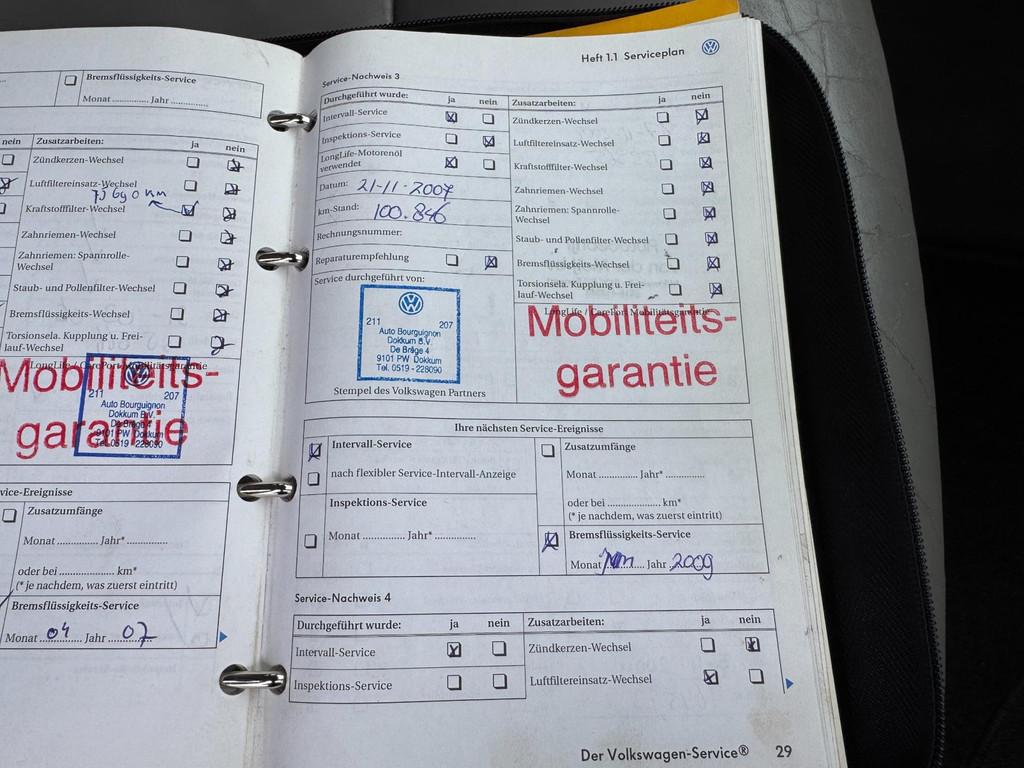 Bremsflüssigkeits-Service
Monat ............. Jahr ...............
nein Zusatzarbeiten: ja nein
Zündkerzen-Wechsel
Luftfiltereinsatz-Wechsel
km
Kraftstofffilter-Wechsel
Zahnriemen-Wechsel
Zahnriemen: Spannrolle-
Wechsel
Staub- und Pollenfilter-Wechsel
Bremsflüssigkeits-Wechsel
Torsionsela. Kupplung u. Frei-
lauf-Wechsel
LongLife / CarePort Mobilitätsgarantie
Mobiliteits-
garantie
211 207
Auto Bourguignon
Dokkum B.V.
De Bràge 4
9101 PW Dokkum
Tel. 0519 - 228090
vice-Ereignisse
Zusatzumfänge
Monat ............ Jahr* ...............
oder bei ..................... km*
(* je nachdem, was zuerst eintritt)
Bremsflüssigkeits-Service
Monat 04 Jahr 07
Heft 1.1 Serviceplan
Service-Nachweis 3
Durchgeführt wurde: ja nein Zusatzarbeiten: ja nein
Intervall-Service
Inspektions-Service
LongLife-Motorenöl
verwendet
Datum: 21-11-2007
km-Stand: 100.846
Rechnungsnummer:
Reparaturempfehlung
Service durchgeführt von:
211 207
Auto Bourguignon
Dokkum B.V.
De Bràge 4
9101 PW Dokkum
Tel. 0519 - 228090
Stempel des Volkswagen Partners
Zündkerzen-Wechsel
Luftfiltereinsatz-Wechsel
Kraftstofffilter-Wechsel
Zahnriemen-Wechsel
Zahnriemen: Spannrolle-
Wechsel
Staub- und Pollenfilter-Wechsel
Bremsflüssigkeits-Wechsel
Torsionsela. Kupplung u. Frei-
lauf-Wechsel
LongLife / CarePort Mobilitätsgarantie
Mobiliteits-
garantie
Ihre nächsten Service-Ereignisse
Intervall-Service
nach flexibler Service-Intervall-Anzeige
Inspektions-Service
Monat ............ Jahr* ...............
Zusatzumfänge
Monat ............ Jahr* ...............
oder bei ..................... km*
(* je nachdem, was zuerst eintritt)
Bremsflüssigkeits-Service
Monat Jahr 2009
Service-Nachweis 4
Durchgeführt wurde: ja nein Zusatzarbeiten: ja nein
Intervall-Service
Inspektions-Service
Zündkerzen-Wechsel
Luftfiltereinsatz-Wechsel
Der Volkswagen-Service® 29